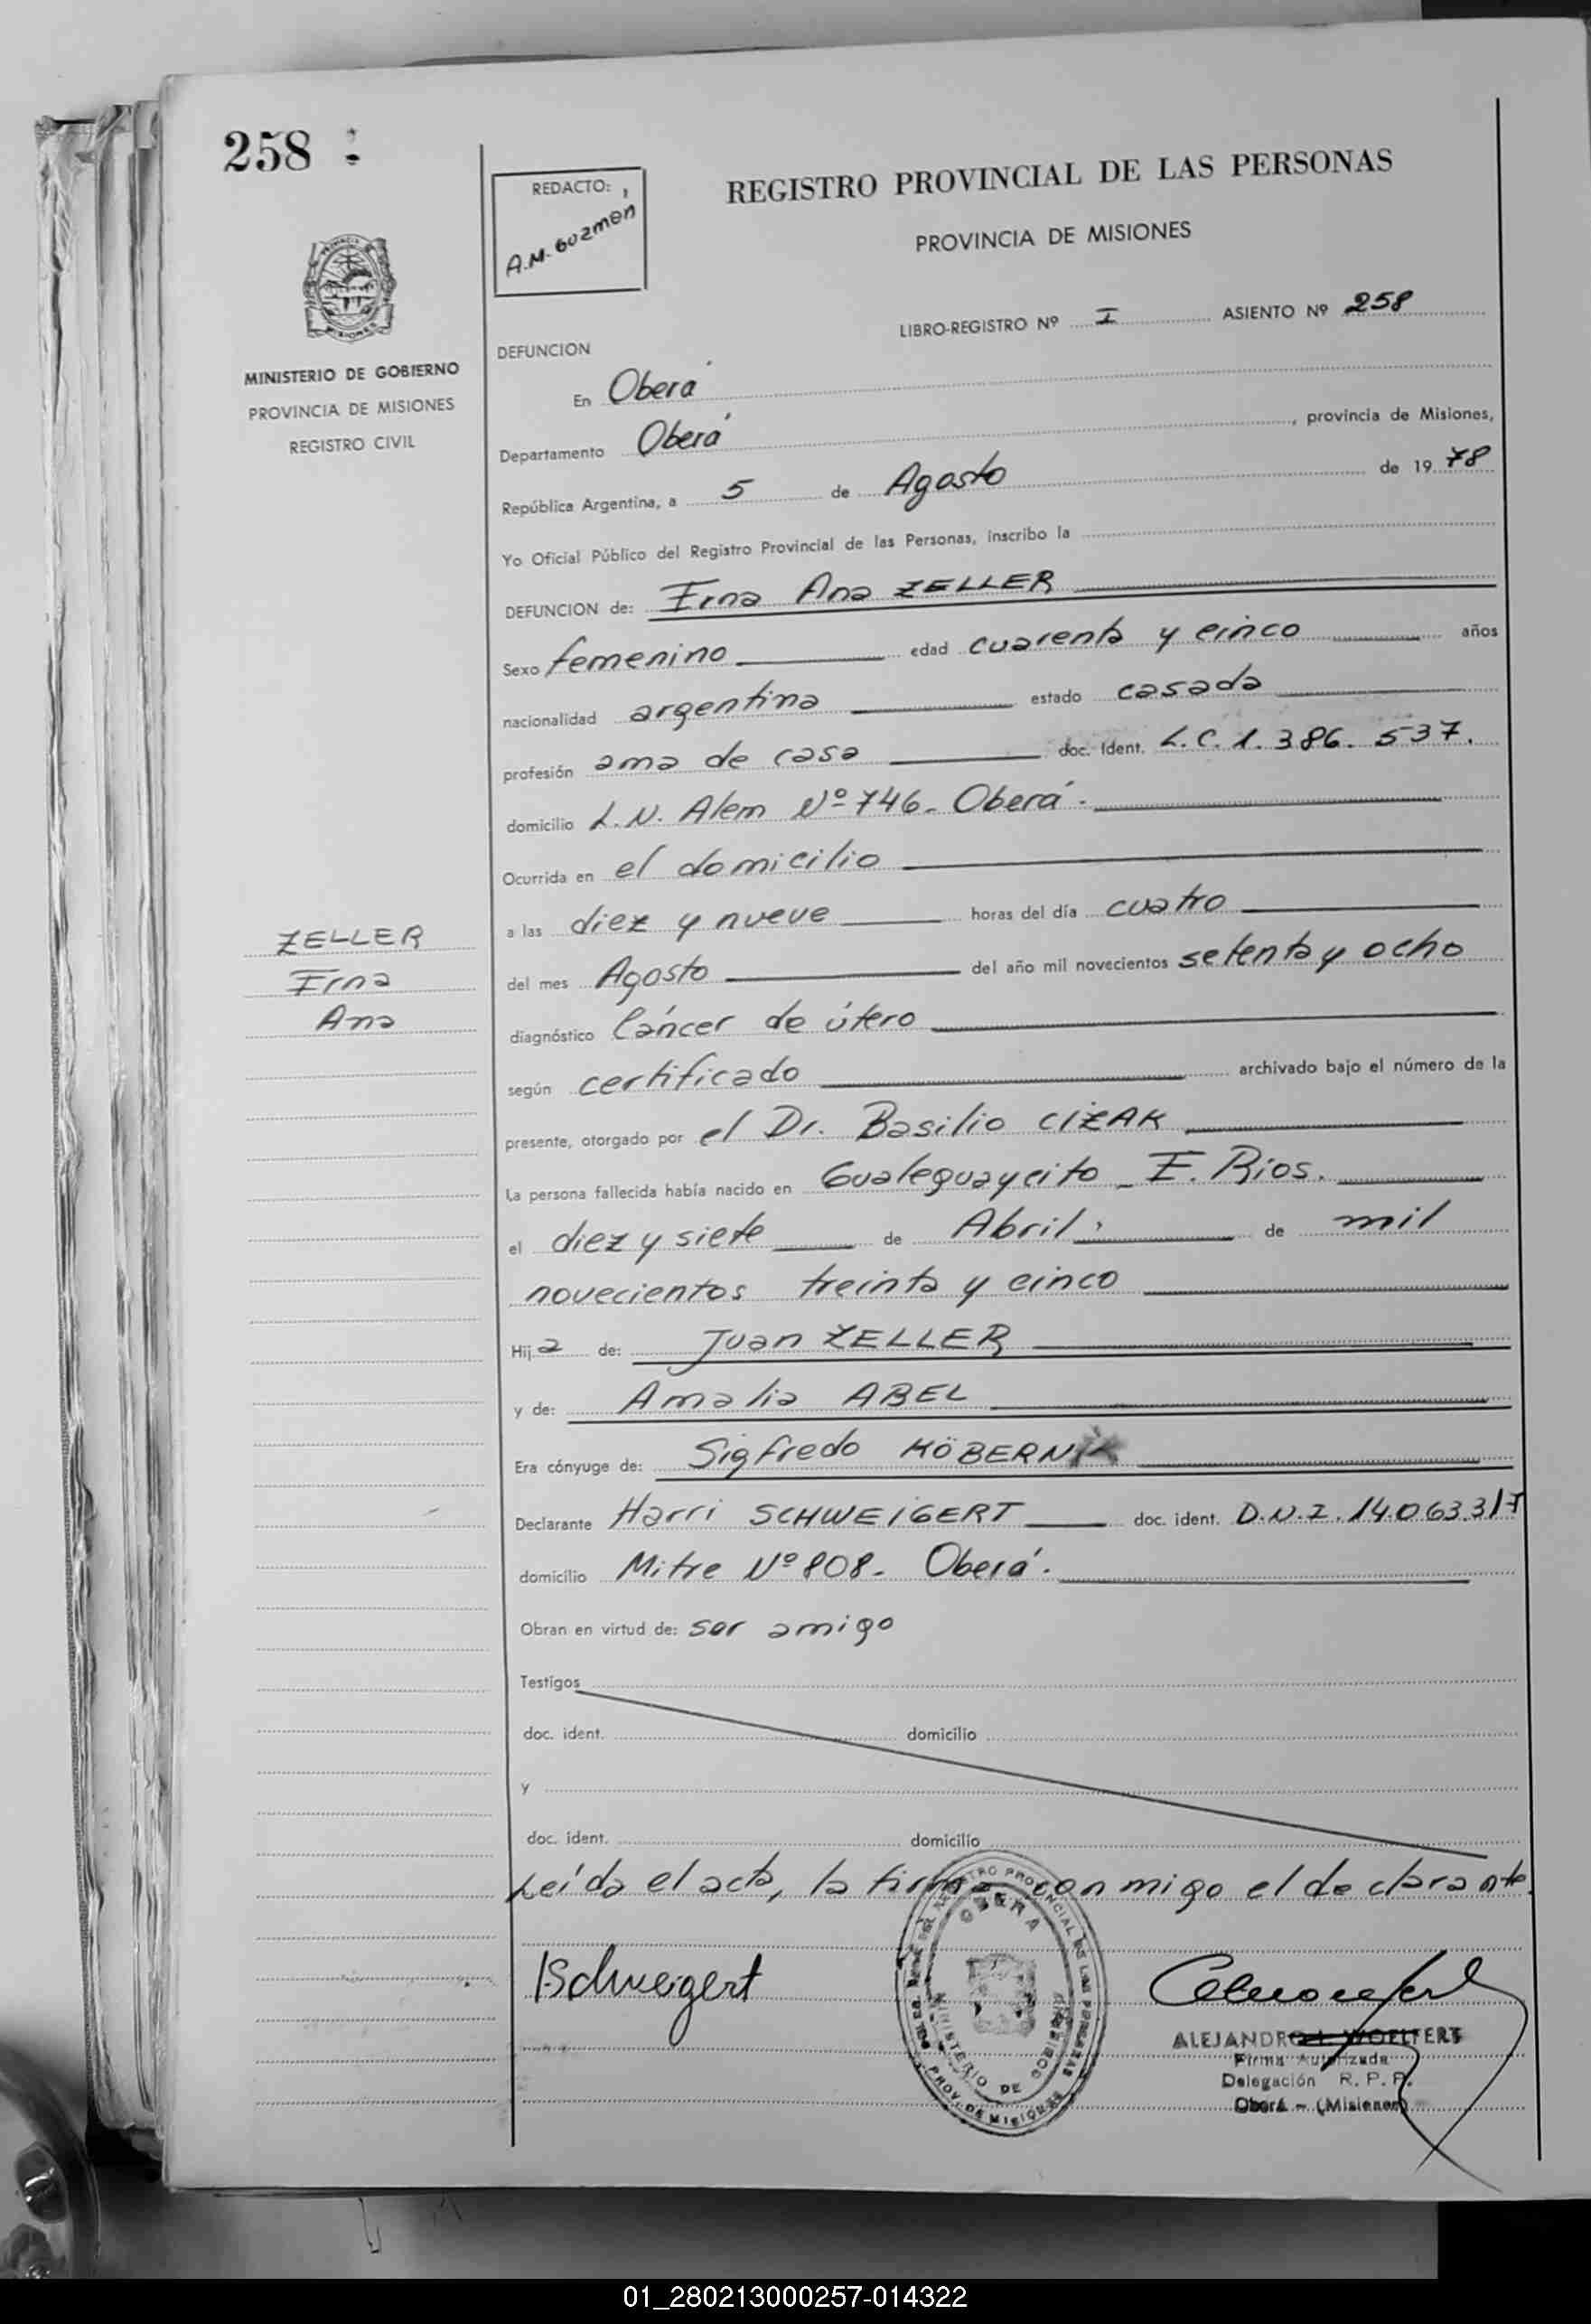 258
REDACTO:
A.M. Guzmen
REGISTRO PROVINCIAL DE LAS PERSONAS
PROVINCIA DE MISIONES
LIBRO-REGISTRO Nº I ASIENTO Nº 258
MINISTERIO DE GOBIERNO
PROVINCIA DE MISIONES
REGISTRO CIVIL
DEFUNCION
En Oberá
Departamento Oberá, provincia de Misiones,
República Argentina, a 5 de Agosto de 1978
Yo Oficial Público del Registro Provincial de las Personas, inscribo la
DEFUNCION de: Erna Ana ZELLER
Sexo femenino edad cuarenta y cinco años
nacionalidad argentina estado casada
profesión ama de casa doc. Ident. L.C. 1.386.537.
domicilio L.N. Alem Nº 746- Oberá.
Ocurrida en el domicilio
a las diez y nueve horas del día cuatro
del mes Agosto del año mil novecientos setenta y ocho
diagnóstico Cáncer de útero
según certificado archivado bajo el número de la
presente, otorgado por el Dr. Basilio CIZAK
La persona fallecida había nacido en Gualeguaycito - E. Rios.
el diez y siete de Abril de mil
novecientos treinta y cinco
Hija de: Juan ZELLER
y de: Amalia ABEL
Era cónyuge de: Sigfredo KÖBERNIK
Declarante Harri SCHWEIGERT doc. ident. D.N.I. 14.063.317
domicilio Mitre Nº 808- Oberá.
Obran en virtud de: ser amigo
Testigos
doc. ident. domicilio
y
doc. ident. domicilio
Leída el acta, la firma con migo el declarante.
ZELLER
Erna
Ana
HSchweigert
OBERA
MINISTERIO DE GOBIERNO
REGISTRO PROVINCIAL DE LAS PERSONAS
PROV. DE MISIONES
ALEJANDRO L. WOELFERT
Firma Autorizada
Delegación R. P. P.
Oberá - (Misiones)
01_280213000257-014322